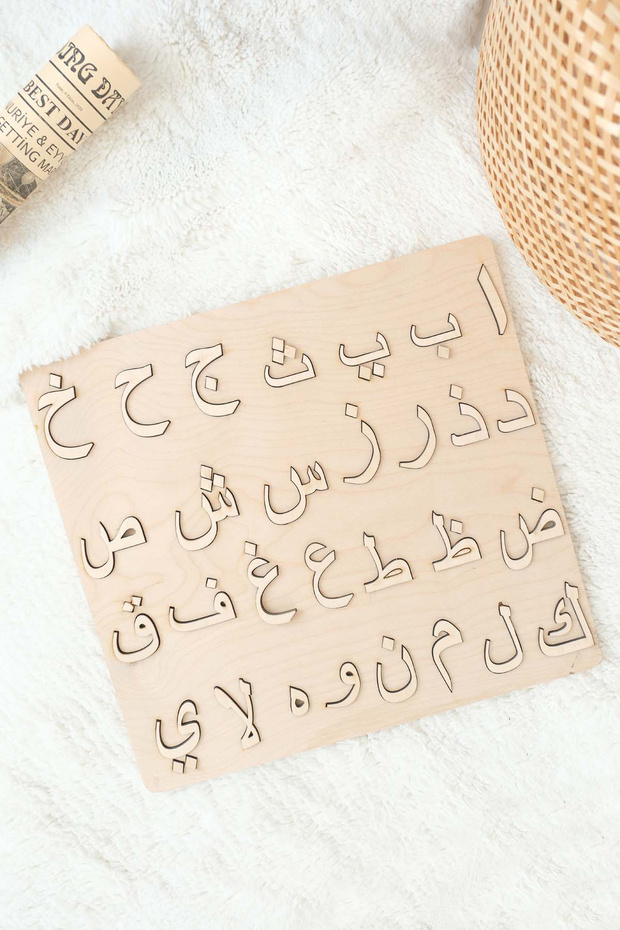 BEST DA
URİYE & EY
GETTING MA
ا ب ت ث ج ح خ
د ذ ر ز س ش ص
ض ظ ط ع غ ف ق
ك ل م ن و ه لا ي